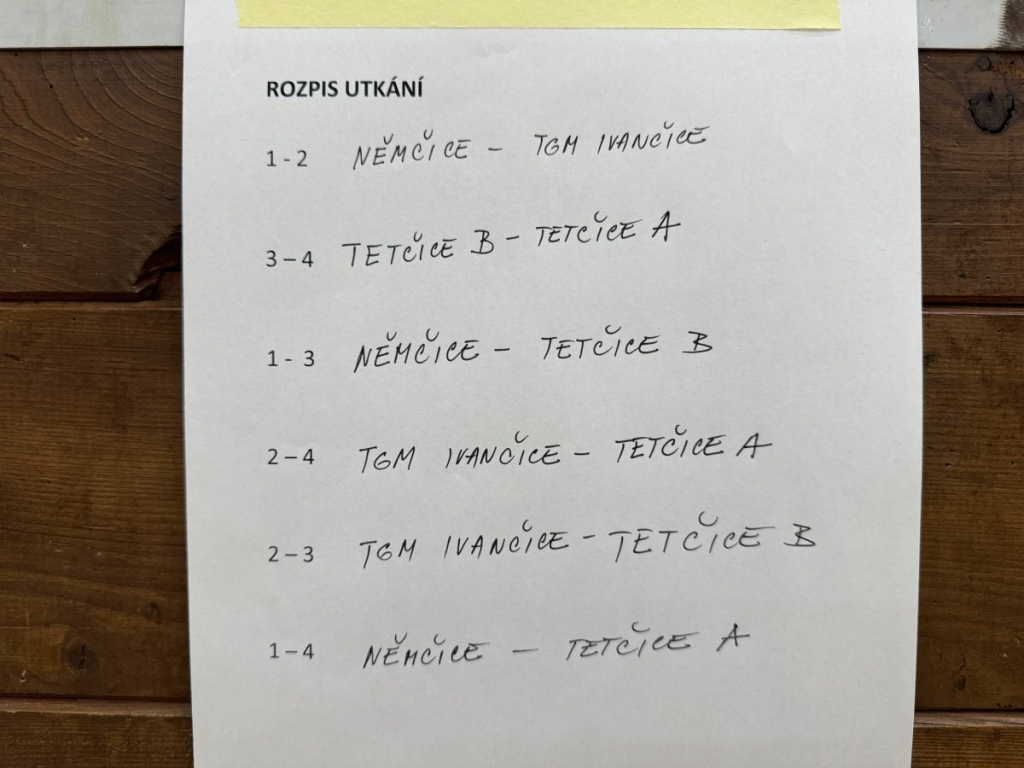 ROZPIS UTKÁNÍ
1 - 2 NĚMČICE - TGM IVANČICE
3 – 4 TETČICE B - TETČICE A
1 - 3 NĚMČICE - TETČICE B
2 – 4 TGM IVANČICE - TETČICE A
2 – 3 TGM IVANČICE - TETČICE B
1 – 4 NĚMČICE - TETČICE A